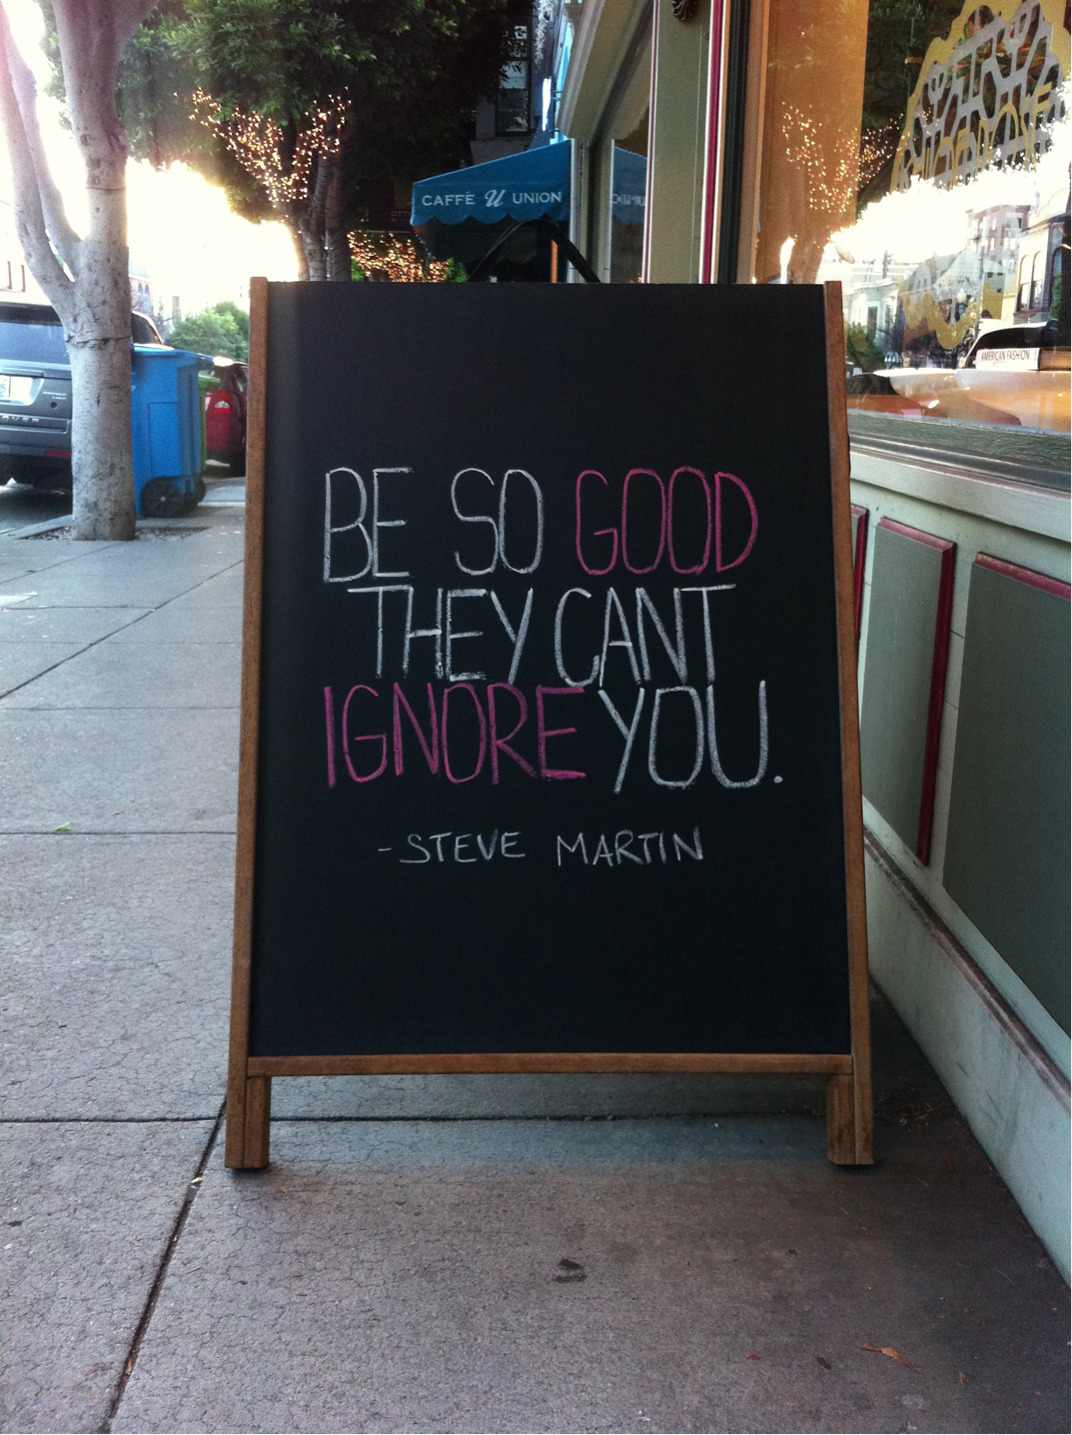 CAFFÉ U UNION
AMERICAN FASHION
BE SO GOOD
THEY CANT
IGNORE YOU.
-STEVE MARTIN